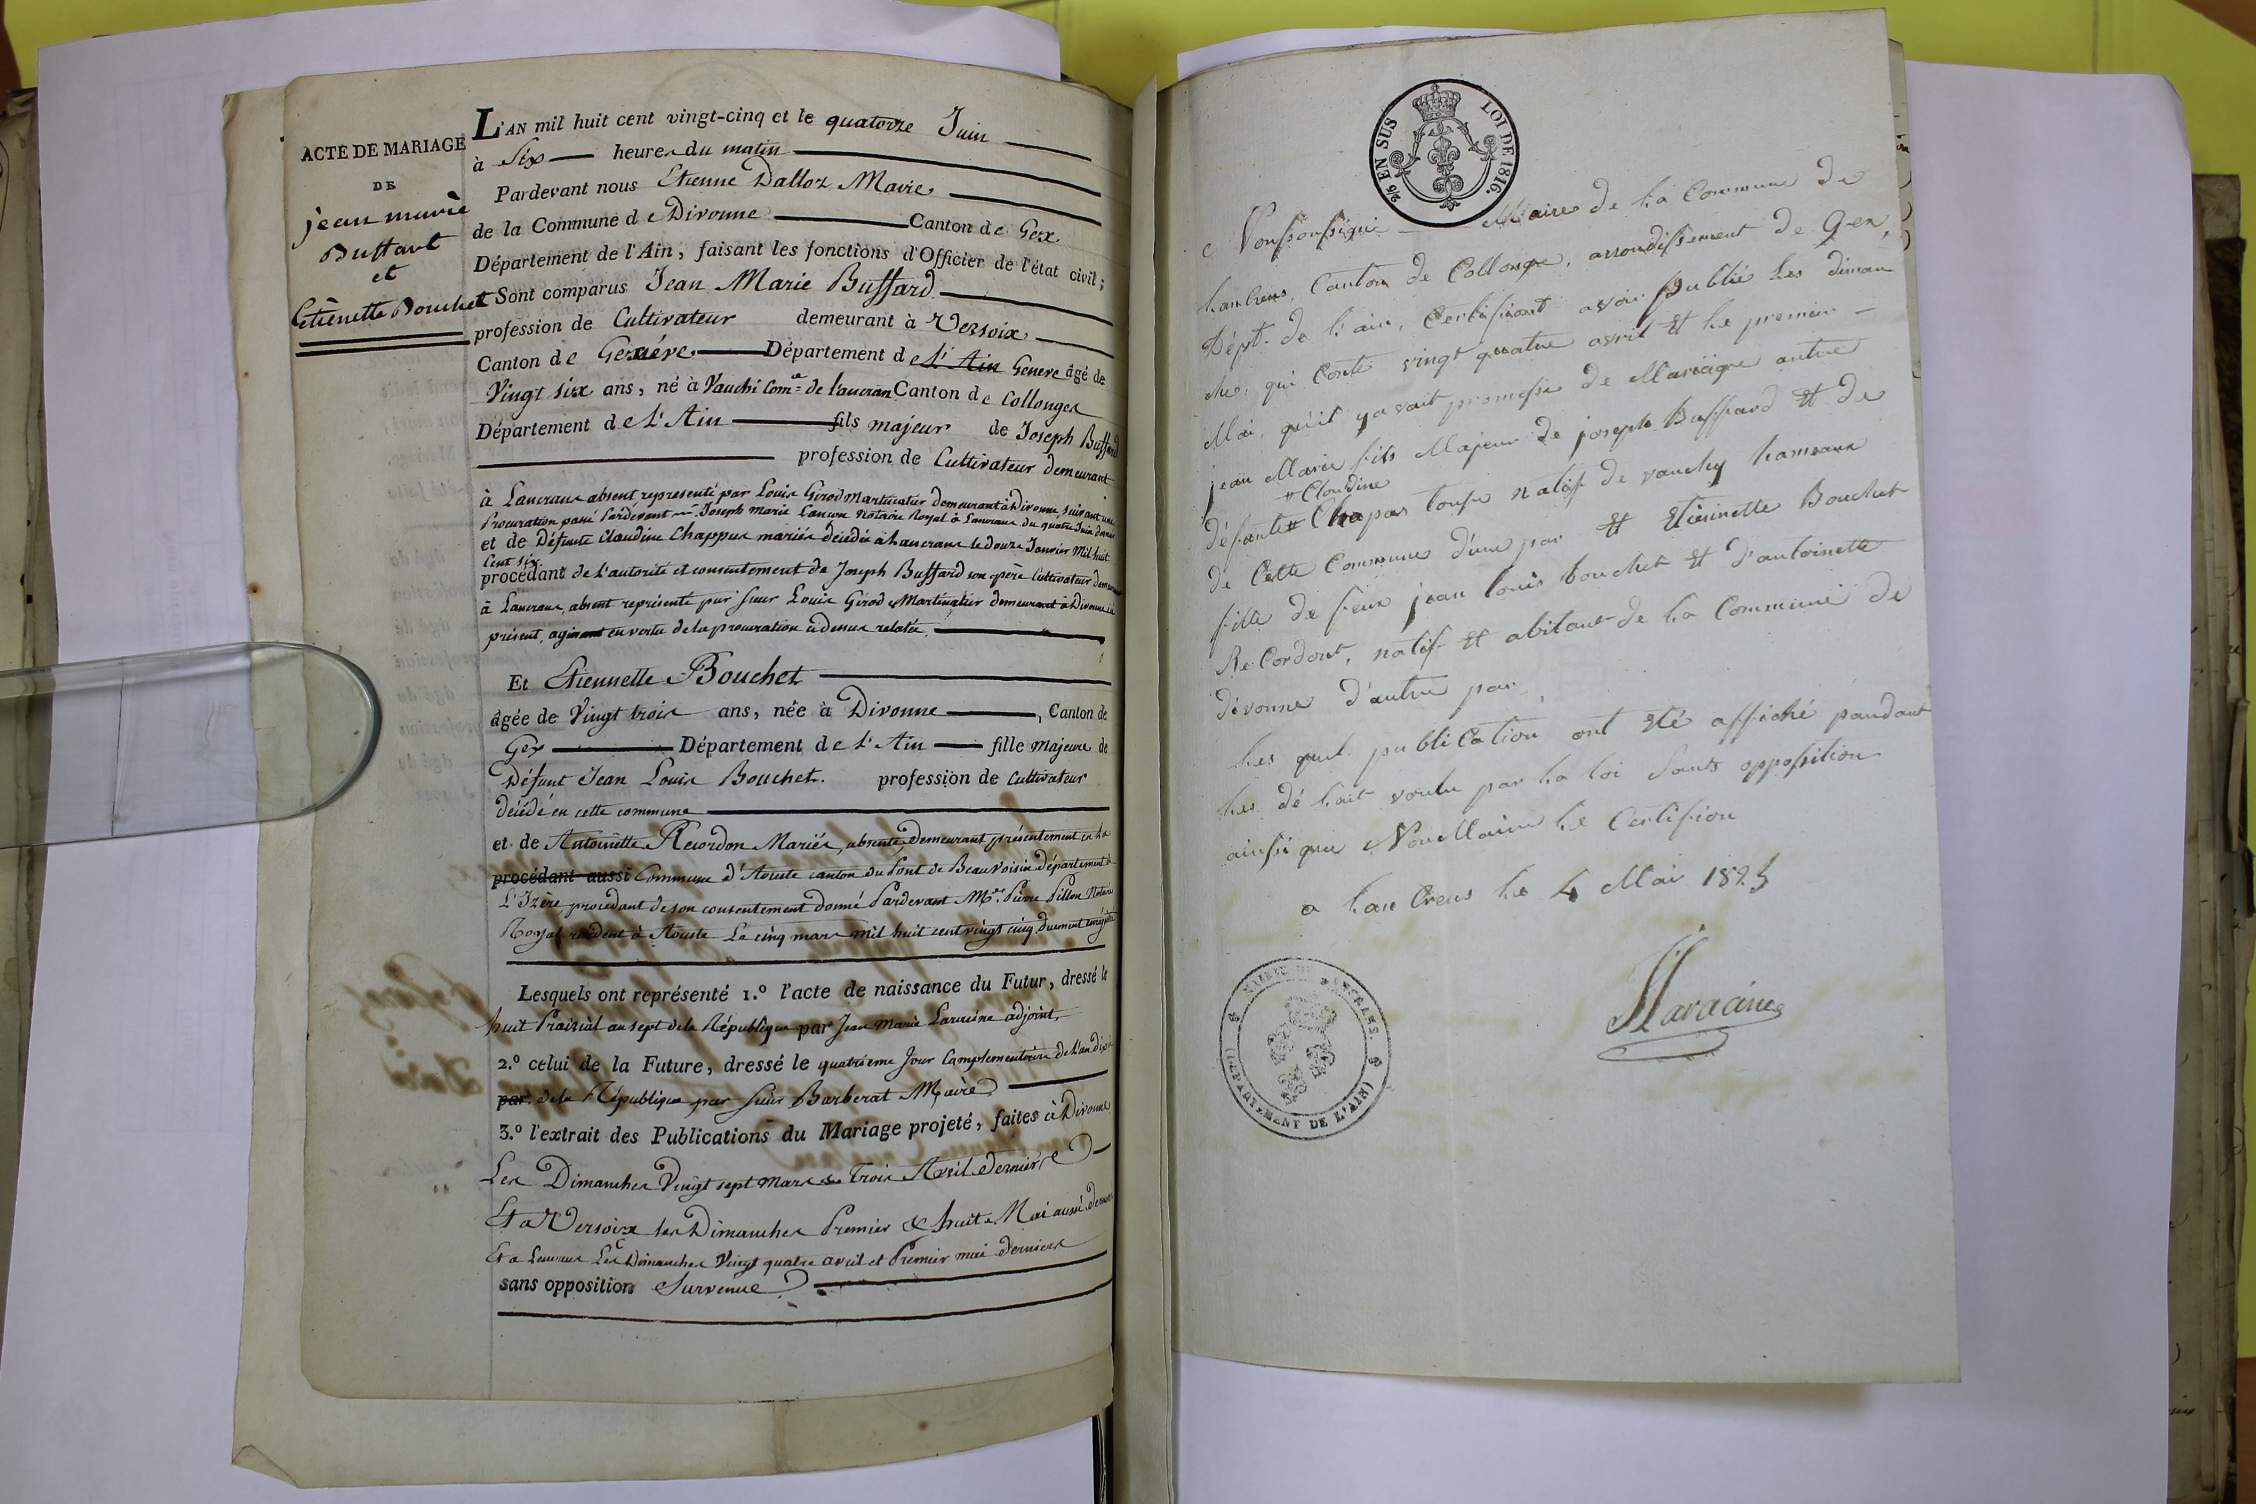 ACTE DE MARIAGE
DE
jean marie
Buffard
et
Etiênette Bouchet
L'AN mil huit cent vingt-cinq et le quatorze Juin
à Six heures du matin
Pardevant nous Etienne Dalloz Maire
de la Commune de Divonne Canton de Gex
Département de l'Ain, faisant les fonctions d'Officier de l'état civil;
Sont comparus Jean Marie Buffard
profession de Cultivateur demeurant à Versoix
Canton de Genéve Département de L'Ain Geneve âgé de
Vingt six ans, né à Vauchi Com.e de Lancran Canton de Collonges
Département de L'Ain fils majeur de Joseph Buffard
profession de Cultivateur demeurant
à Lancrans absent representé par Louis Girod Martinatier demeurant à Divonne, suivant une
Procuration passé Pardevant Joseph Marie Lancon Notaire Royal à Lancrans du quatre Juin
et de Défunte Claudine Chappuz mariés décédée à Lancrans le douze Janvier Mil huit
Cent six
procédant de L'autorité et consentement de Joseph Buffard son père Cultivateur
à Lancrans, absent représenté par sieur Louis Girod Martinatier demeurant à Divonne ici
présent, agissant en vertu de la procuration ci dessus relatée.
Et Etiennette Bouchet
âgée de Vingt trois ans, née à Divonne, Canton de
Gex Département de L'Ain fille majeure de
Défunt Jean Louis Bouchet. profession de Cultivateur
décédé en cette commune
et de Antoinette Recordon Mariés, absente, demeurant présentement en la
procédant aussi Commune d'Aouste canton du Pont de Beauvoisin département de
L'Izère procédant de son consentement donné Pardevant M.e Pierre Pillon Notaire
Royal résident à Aouste Le cinq mars mil huit cent vingt cinq duement enrégistré
Lesquels ont représenté 1.º l'acte de naissance du Futur, dressé le
huit Prairial an sept de la République par Jean Marie Laracine adjoint,
2.º celui de la Future, dressé le quatrieme Jour Complementaire de l'an dix
par de la République par sieur Barberat Maire
3.º l'extrait des Publications du Mariage projeté, faites à Divonne
Les Dimanches Vingt sept Mars & Trois Avril dernier
Et a Versoix les Dimanches Premier & huit Mai aussi dernier
Et a Lancrans Les Dimanches Vingt quatre avril et Premier mai derniers
sans opposition Survenue
2/6 EN SUS LOI DE 1816.
Nousoussigné Maire de la Commune de
Lancrens, Canton de Collonge, arrondissement de Gex,
Dépt. de l'ain, Certifiont avoir publié les diman
che, qui Conte vingt quatre avril et le premier
Mai, qu'il y avait promesse de Mariage antre
jean Marie fils Majeur de joseph Buffard et de
# Claudine
défante # Chapas tousse natif de vauchy hameaux
de Cette Commune d'une par et Etiênnette Bouchet
fille de feux jean louis bouchet et d'antoinette
Re Cordont, natif et abitant de la Commune de
divonne d'autre par
Les quel publication ont été affiché pandant
les dé lait voulu par la loi Sants opposition
ainsi que Nous Maire le Certifion
a Lan Crens le 4 Mai 1825
Laracine
MAIRIE DE LANCRANS.
(DEPARTEMENT DE L'AIN)